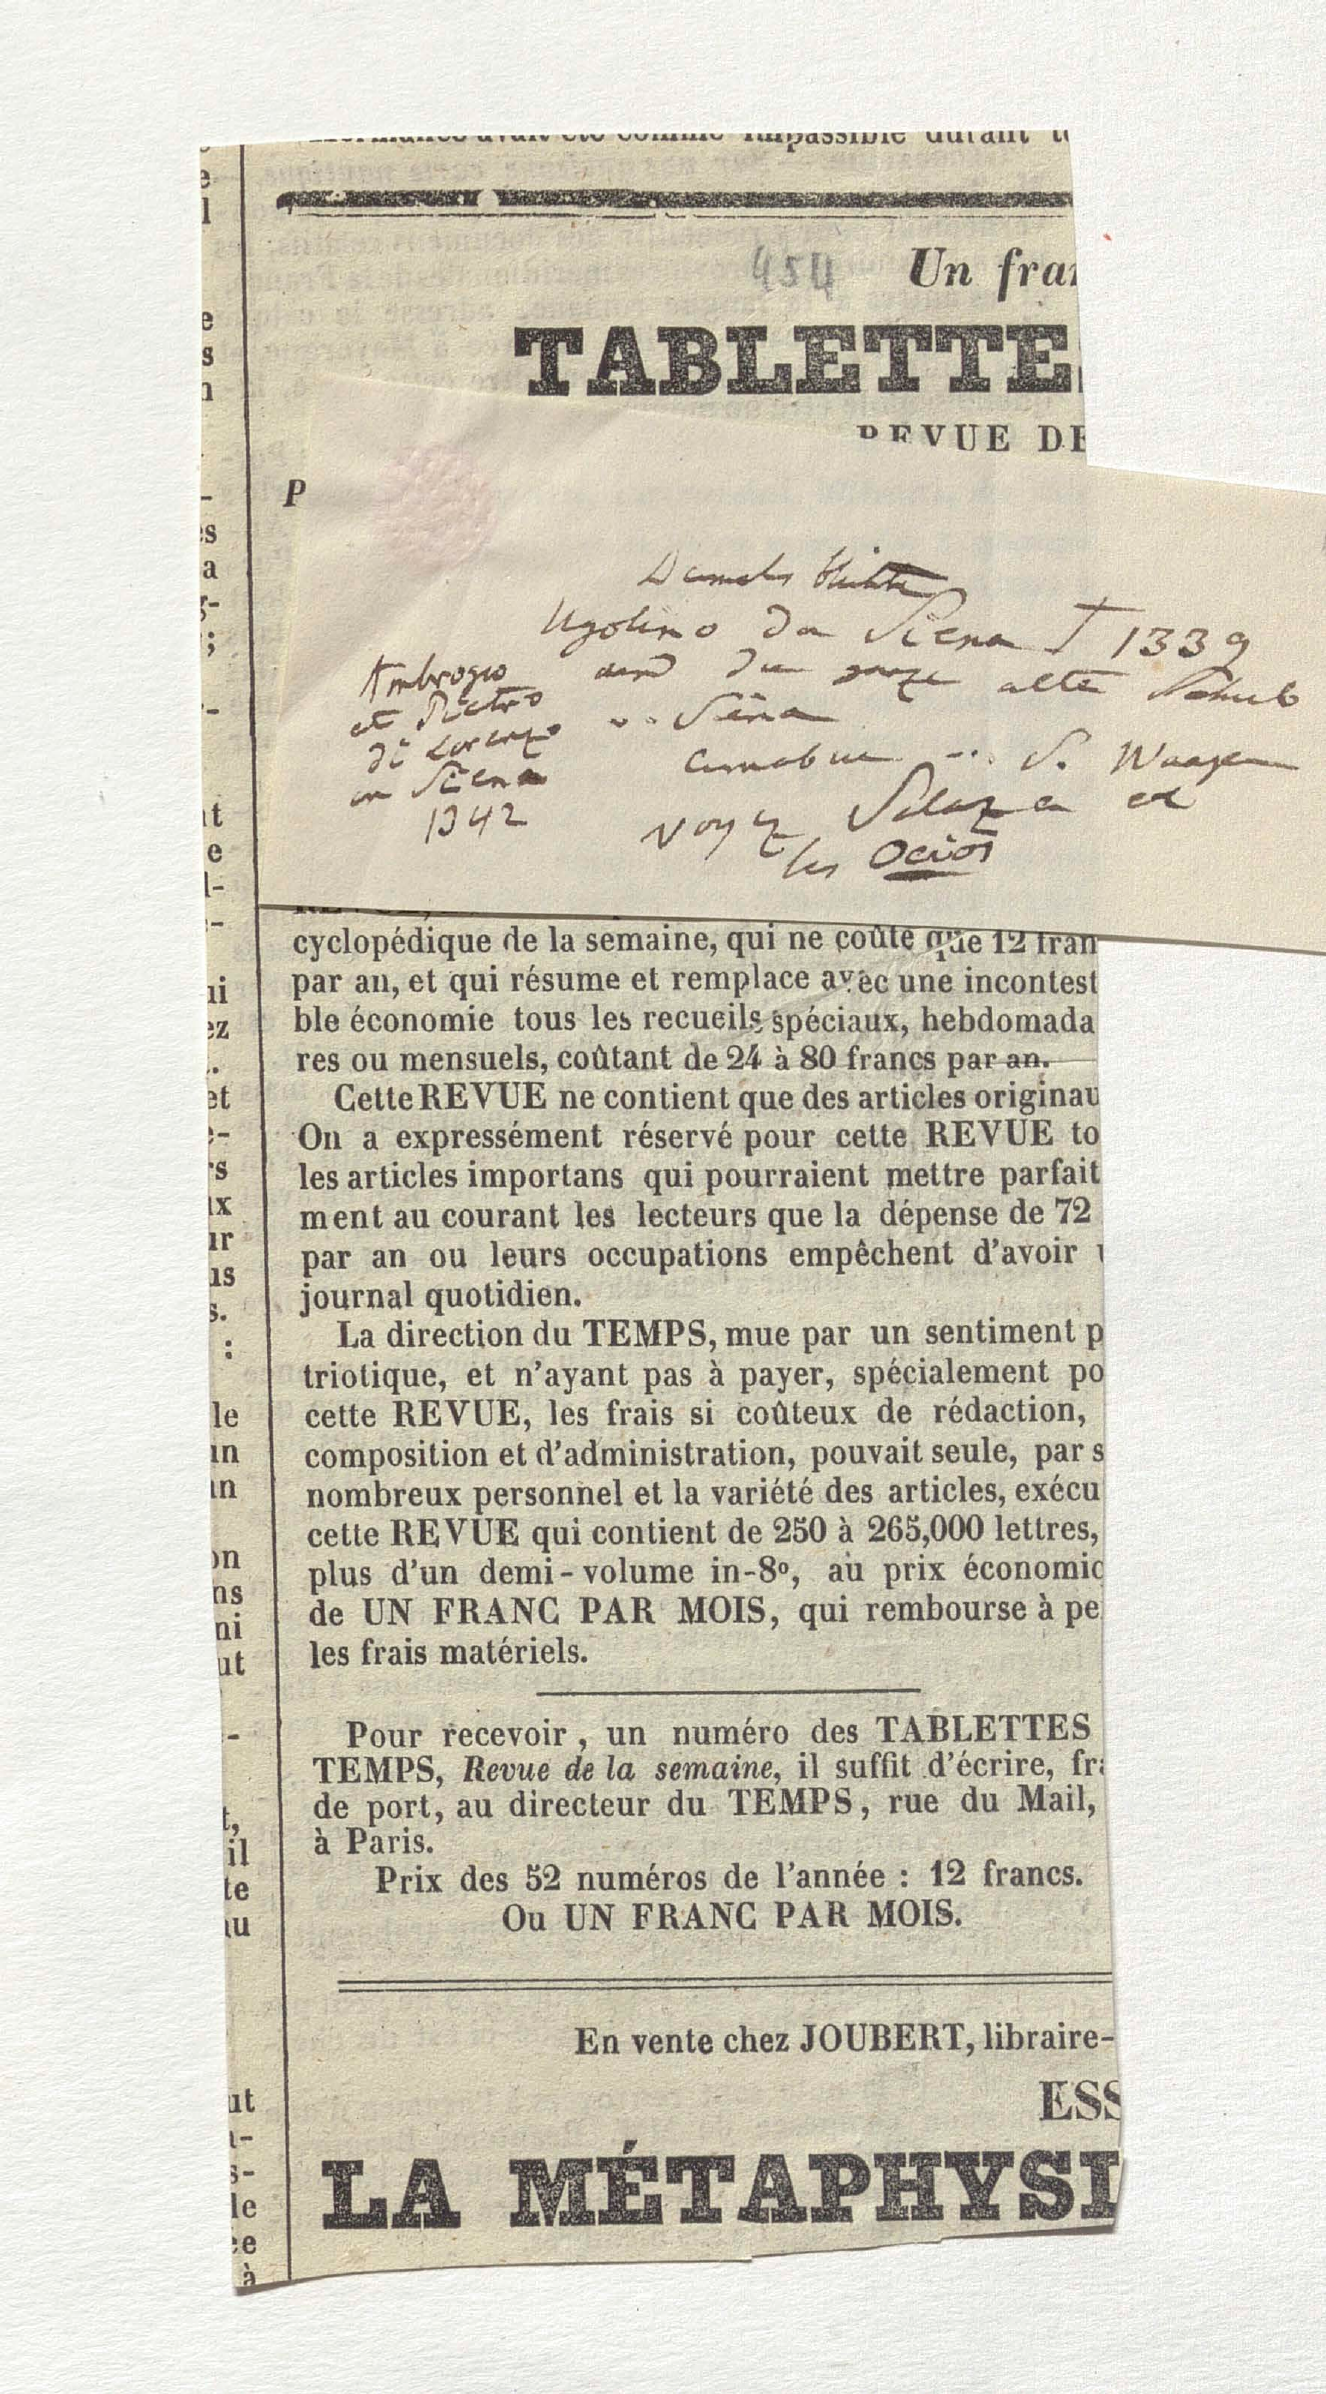 454
Un fra
TABLETTE
REVUE DE
P
Ugolino da Siena † 1339
und die ganze alte Schule
Ambrogio
et Pietro
di Lorenzo
in Siena
1342
v. Siena
Cimabue ... S. Waagen
voyez et
les Ocios
cyclopédique de la semaine, qui ne coûte que 12 fran
par an, et qui résume et remplace avec une incontest
ble économie tous les recueils spéciaux, hebdomada
res ou mensuels, coûtant de 24 à 80 francs par an.
Cette REVUE ne contient que des articles originau
On a expressément réservé pour cette REVUE to
les articles importans qui pourraient mettre parfait
ment au courant les lecteurs que la dépense de 72
par an ou leurs occupations empêchent d'avoir
journal quotidien.
La direction du TEMPS, mue par un sentiment p
triotique, et n'ayant pas à payer, spécialement po
cette REVUE, les frais si coûteux de rédaction,
composition et d'administration, pouvait seule, par s
nombreux personnel et la variété des articles, exécu
cette REVUE qui contient de 250 à 265,000 lettres,
plus d'un demi-volume in-8°, au prix économic
de UN FRANC PAR MOIS, qui rembourse à pe
les frais matériels.
Pour recevoir, un numéro des TABLETTES
TEMPS, Revue de la semaine, il suffit d'écrire, fra
de port, au directeur du TEMPS, rue du Mail,
à Paris.
Prix des 52 numéros de l'année : 12 francs.
Ou UN FRANC PAR MOIS.
En vente chez JOUBERT, libraire-
ESS
LA MÉTAPHYSI